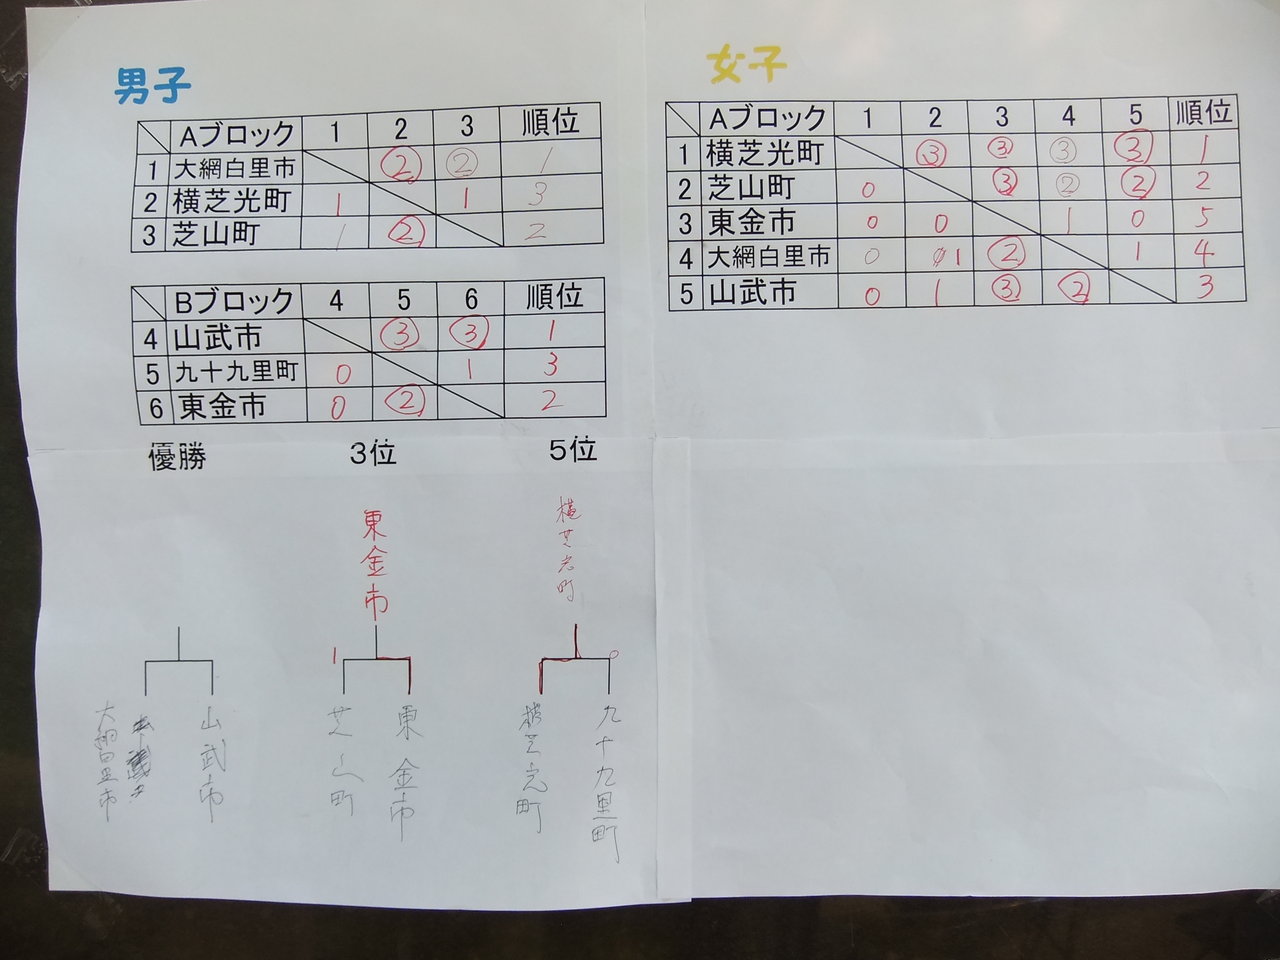 男子
Aブロック 1 2 3 順位
1 大網白里市 ② ② 1
2 横芝光町 1 1 3
3 芝山町 1 ② 2
Bブロック 4 5 6 順位
4 山武市 ③ ③ 1
5 九十九里町 0 1 3
6 東金市 0 ② 2
優勝 3位 5位
東金市
横芝光町
1 0
大網白里市
山武市
芝山町
東金市
横芝光町
九十九里町
女子
Aブロック 1 2 3 4 5 順位
1 横芝光町 ③ ③ ③ ③ 1
2 芝山町 0 ③ ② ② 2
3 東金市 0 0 1 0 5
4 大網白里市 0 1 ② 1 4
5 山武市 0 1 ③ ② 3